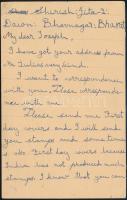 Shirish Jita
Dawn: Bhavnagar: Bharat
My dear Joseph.
I have got your address from
Mr Juliasevery friend.
I want to correspondence
with you. Please correspondence
with me.
Please send me First
day covers and I will send
you stamps and sometimes
I also First day covers because
India has not produced much
stamps. I know that you can